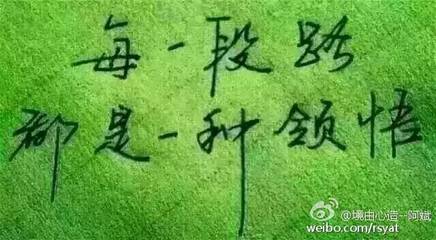 每一段路
都是一种领悟
@境由心造--阿斌
weibo.com/rsyat